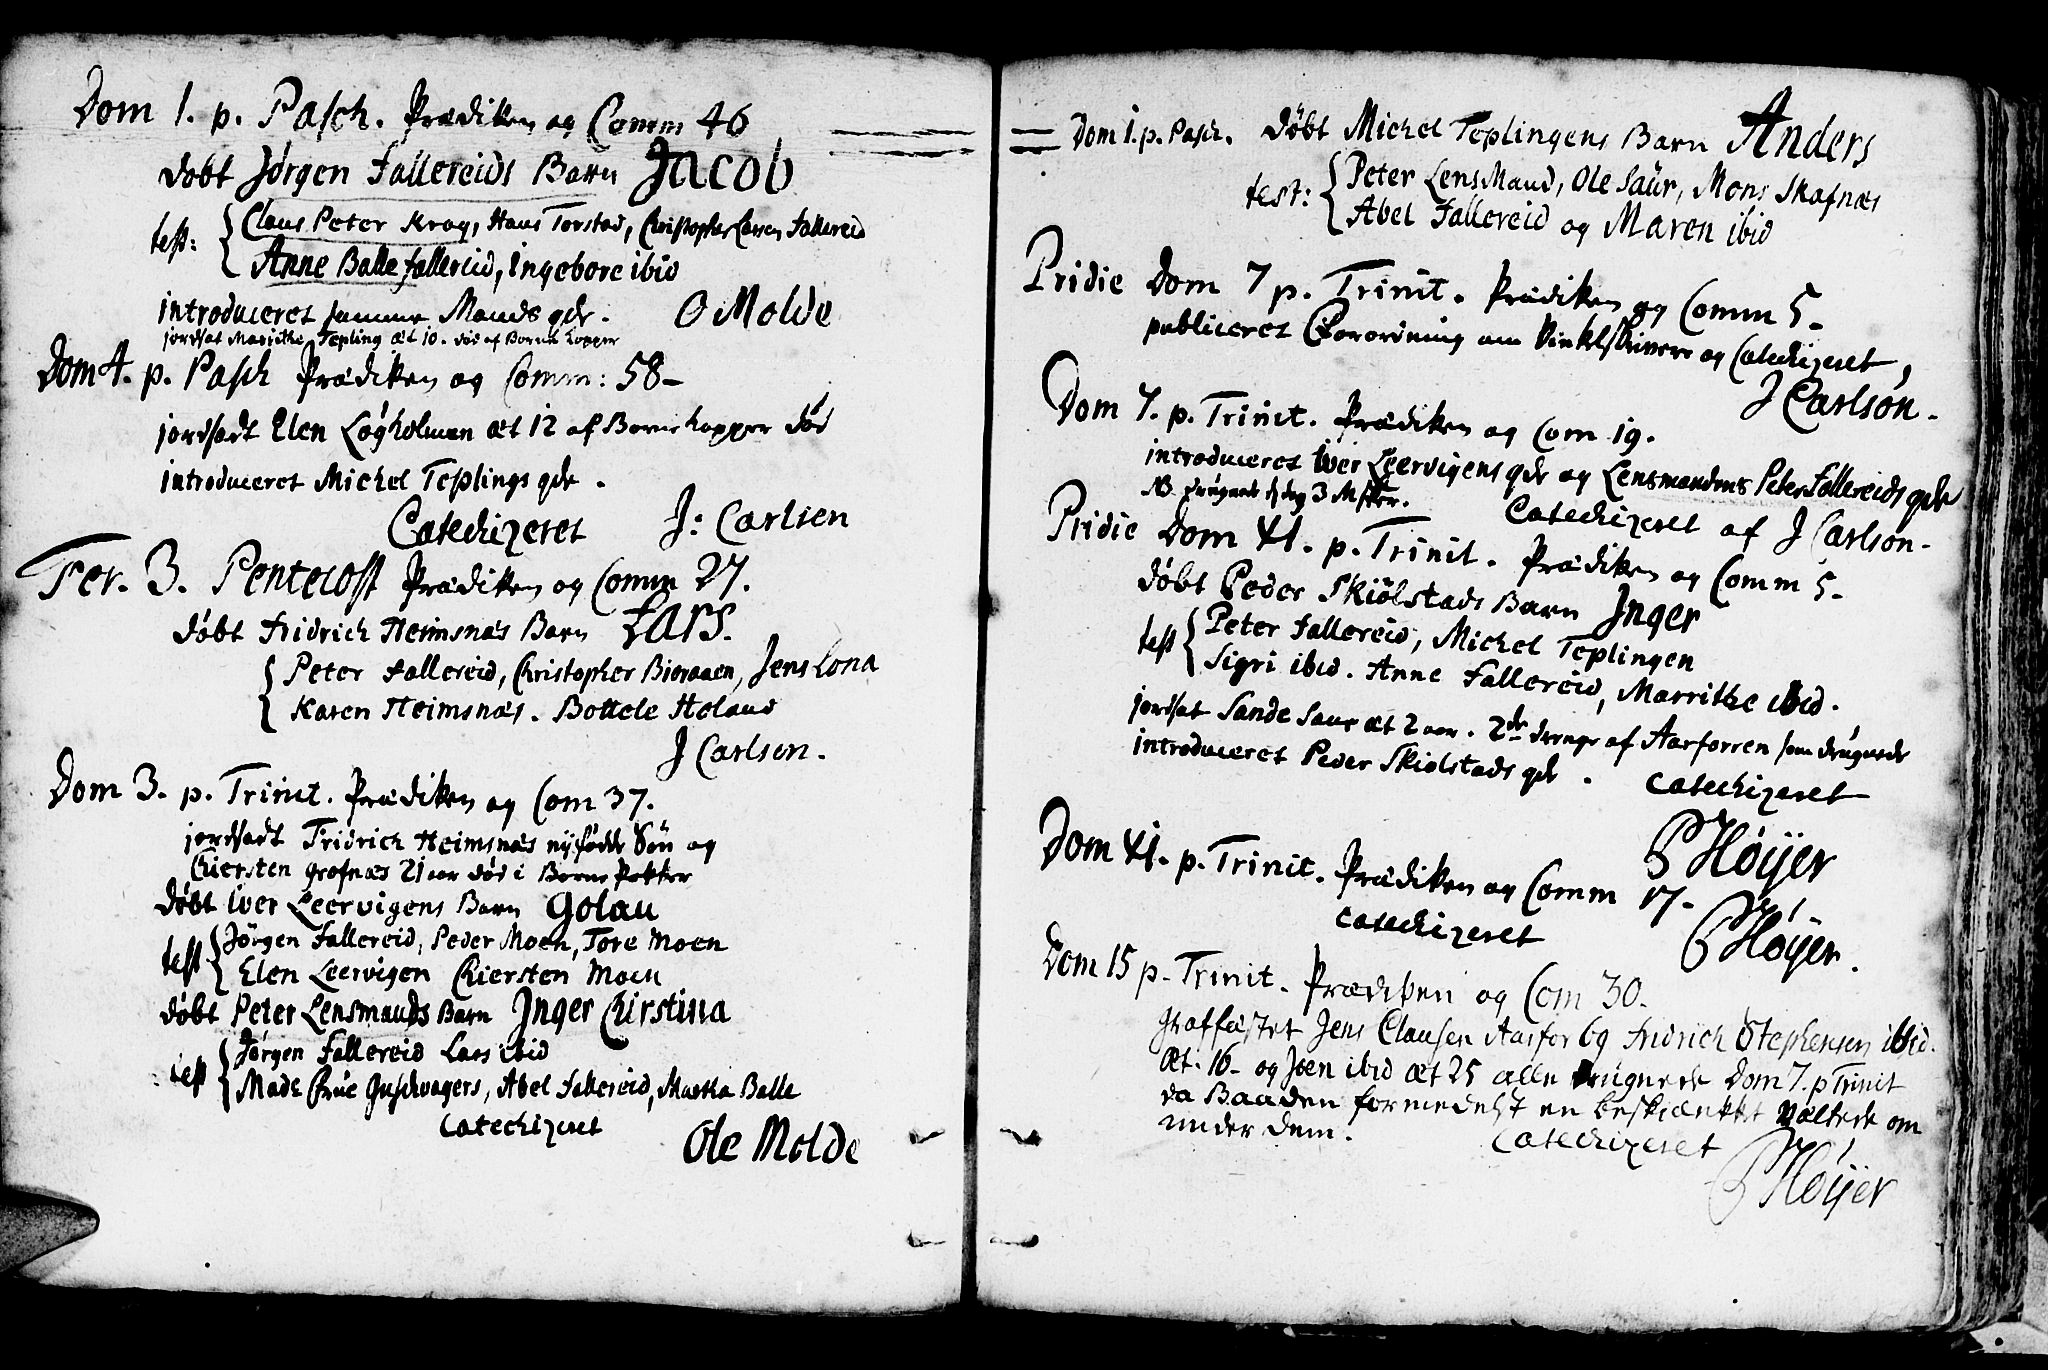 Dom 1. p. Pasch. Prædiken og Comm 46
døbt Jørgen Fallereids Barn Jacob
test: Claus Peter Krog, Hans Torstad, Christopher Fallereid
Anne Balle Fallereid, Ingebore ibid
introduceret samme Mands qde.
O Molde
jordsat Marrithe Tepling æt 10. død af Borne kopper
Dom 4. p. Pasch Prædiken og Comm: 58-
jordsadt Elen Løgholmen æt 12 af Borne kopper død
introduceret Michel Teplings qde.
Catechizeret J: Carlsen
Fer. 3. Pentecost Prædiken og Comm 27.
døbt Fridrich Heimsnæs Barn Lars.
Peter Fallereid, Christopher Bioraaen, Jens Lona
Karen Heimsnæs. Bottele Holand
J Carlsen.
Dom 3. p. Trinit. Prædiken og Com 37.
jordsadt Fridrich Heimsnæs nyfødde Søn og
Chiersten Grofnæs 21 aar død i Borne Pokker
Døbt Iver Leervigens Barn Golau
test Jørgen Fallereid, Peder Moen, Tore Moen
Elen Leervigen Chiersten Moen
døbt Peter Lensmands Barn Inger Chirstina
test Jørgen Fallereid Lars ibid
Made Frue Juschvagers, Abel Fallereid, Martha Balle
Catechizeret
Ole Molde
Dom 1. p. Pasch. døbt Michel Teplingens Barn Anders
test: Peter LensMand, Ole Saur, Mons Skafnæs
Abel Fallereid og Maren ibid
Pridie Dom 7 p. Trinit. Prædiken og Comm 5-
publiceret Forordning om Vinkelskrivere og Catechizeret,
J Carlson.
Dom 7. p. Trinit. Prædiken og Com 19.
introduceret Iver Leervigens qde og Lensmandens Peter Fallereids qde
NB. drugnede 3
Catechizeret af J Carlson.
Pridie Dom XI. p. Trinit. Prædiken og Comm 5-
døbt Peder Skiølstads Barn Inger
test Peter Fallereid, Michel Teplingen
Sigri ibid. Anne Fallereid, Marrithe ibid.
jordsat Sande Saur æt 2 aar. 2de drenge af Aarforren som drugnede
introduceret Peder Skiolstads qde.
Catechizeret
P Høijer
Dom XI. p. Trinit. Prædiken og Comm 17-
catechizeret P Høijer.
Dom 15 p. Trinit. Prædiken og Com 30.
Jens Clausen Aarfor og Fridrich Stephensen ibid.
Æt. 16- og Joen ibid æt 25 alle drugnede Dom 7. p Trinit
da Baaden formedelst en beskiænket væltede om
under dem.
Catechizeret
P Høijer